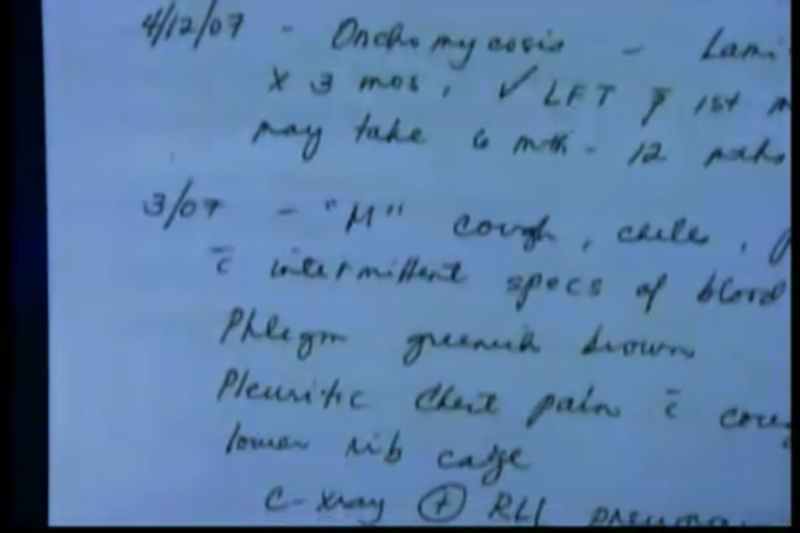 4/12/07 - Onchomycosis - Lami
x 3 mos, ✓ LFT p̄ 1st m
may take 6 mth - 12 mths
3/07 - "M" cough, chills, p
c̄ intermittent specs of blood
Phlegm greenish brown
Pleuritic chest pain c̄ coug
lower rib cage
C-xray ⊕ RLL pneumon